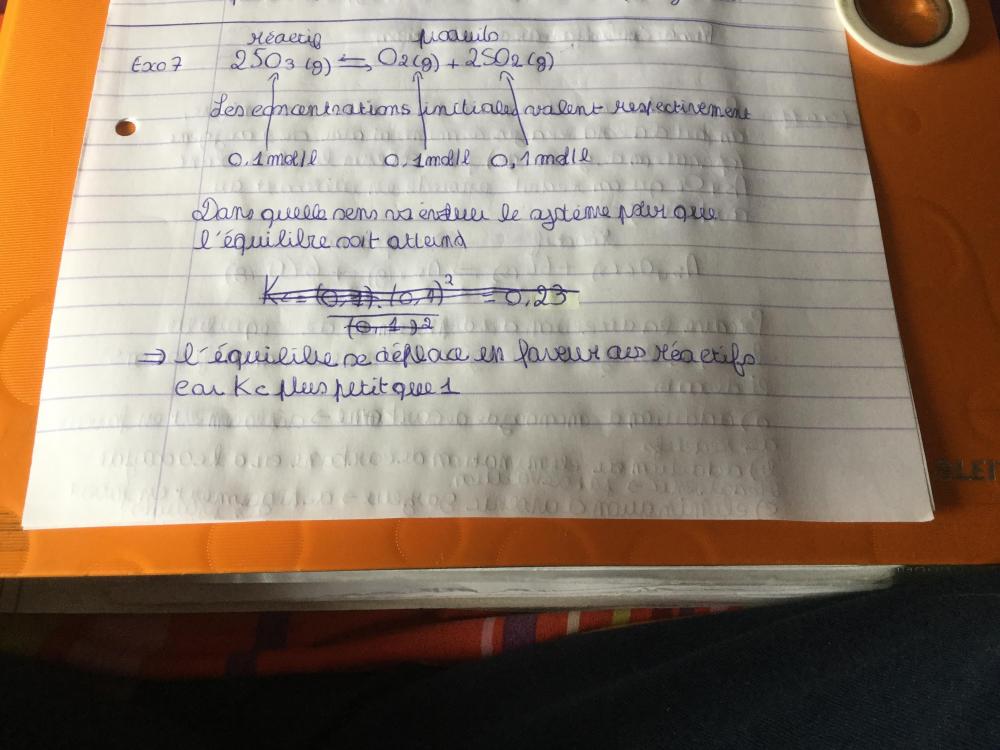 réactif produits
Exo 7 2SO3 (g) ⇆ O2(g) + 2SO2 (g)
Les concentrations initiales valent respectivement
0,1mol/l 0,1mol/l 0,1mol/l
Dans quelle sens va évoluer le système pour que
l'équilibre soit atteind
Kc = (0,1) . (0,1)² = 0,23
(0,1)²
⇒ l'équilibre se déplace en faveur des réactifs
car Kc plus petit que 1